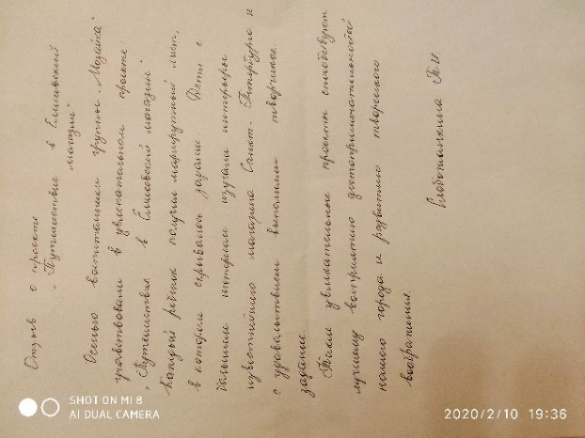 Отзыв о проекте
"Путешествие в Елисеевский
магазин"
Осенью воспитанники группы "Мозаика"
участвовали в увлекательном проекте
"Путешествие в Елисеевский магазин"
Каждый ребёнок получил маршрутный лист,
в котором скрывалось задание. Дети с
большим интересом изучали интерьеры
известнейшего магазина Санкт-Петербурга и
с удовольствием выполнили творческое
задание.
Такие увлекательные проекты способствуют
лучшему восприятию достопримечательностей
нашего города и развитию творческого
воображения.
SHOT ON MI 8
AI DUAL CAMERA
2020/2/10 19:36